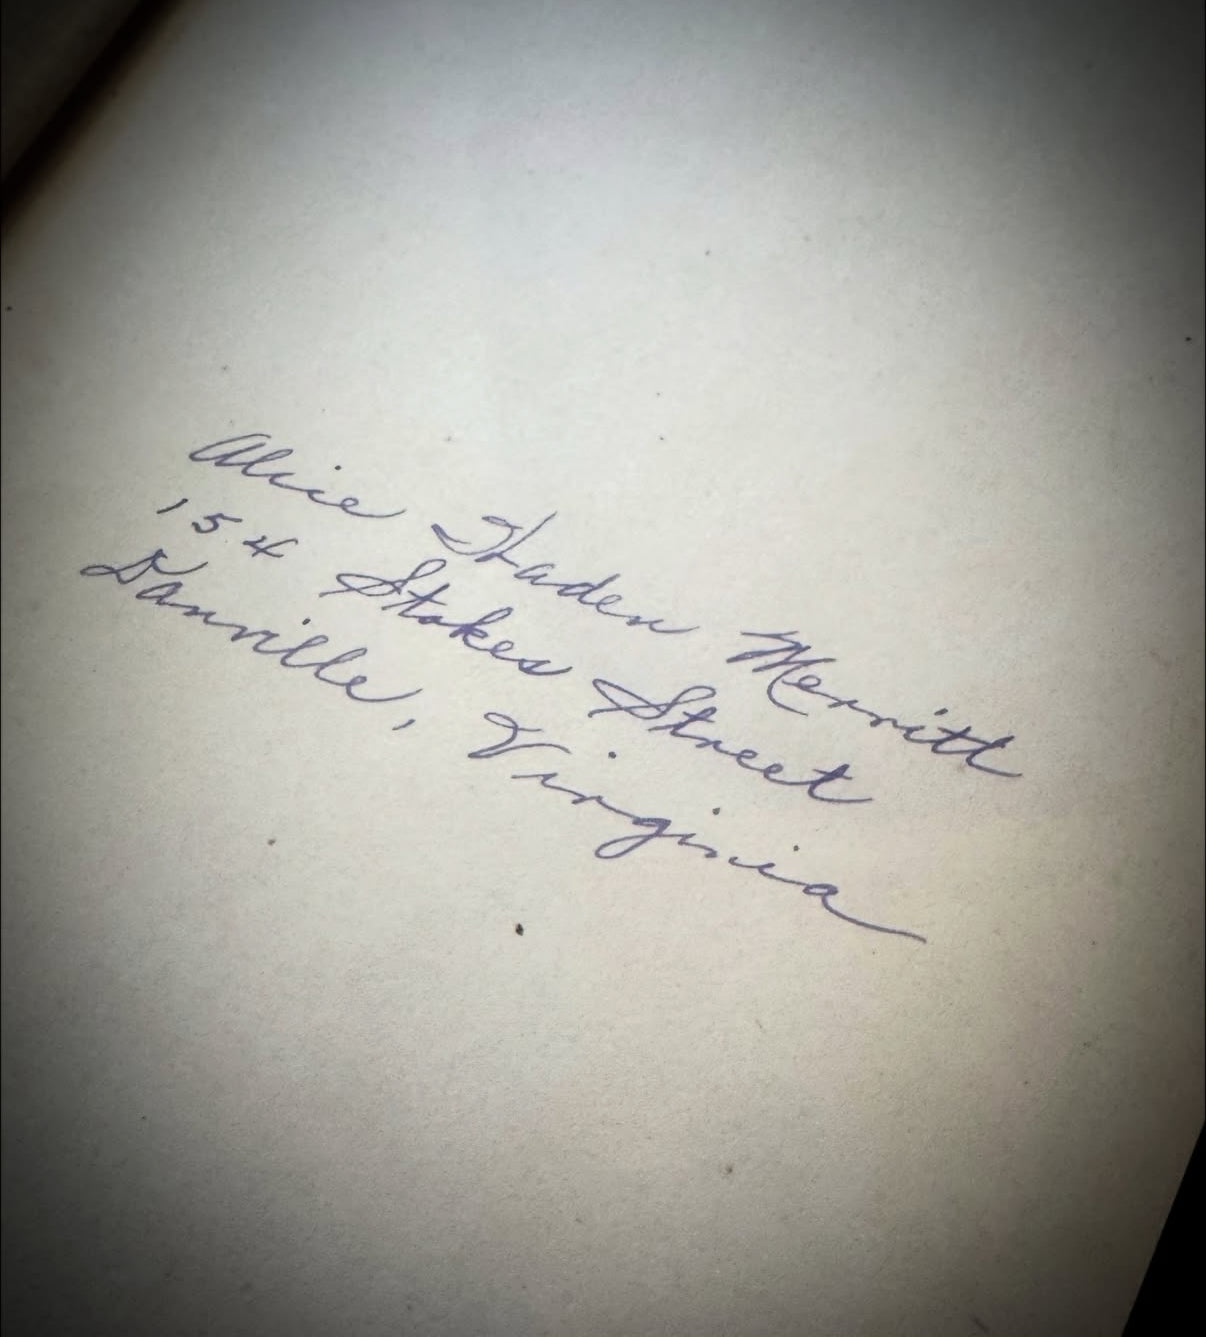 Alice Haden Merritt
154 Stokes Street
Danville, Virginia